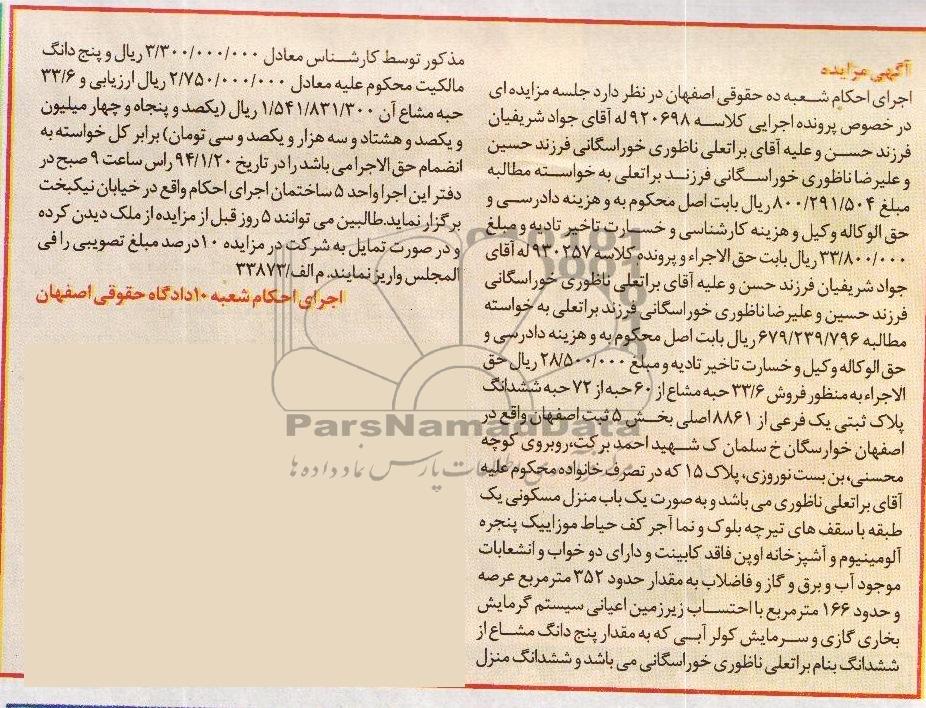 آگهی مزایده
اجرای احکام شعبه ده حقوقی اصفهان در نظر دارد جلسه مزایده ای
در خصوص پرونده اجرایی کلاسه ۹۲۰۶۹۸ له آقای جواد شریفیان
فرزند حسن و علیه آقای براتعلی ناظوری خوراسگانی فرزند حسین
و علیرضا ناظوری خوراسگانی فرزند براتعلی به خواسته مطالبه
مبلغ ۸۰۰/۲۹۱/۵۰۴ ریال بابت اصل محکوم به و هزینه دادرسی و
حق الوکاله وکیل و هزینه کارشناسی و خسارت تاخیر تادیه و مبلغ
۳۳/۸۰۰/۰۰۰ ریال بابت حق الاجراء و پرونده کلاسه ۹۲۰۲۵۷ له آقای
جواد شریفیان فرزند حسن و علیه آقای براتعلی ناظوری خوراسگانی
فرزند حسین و علیرضا ناظوری خوراسگانی فرزند براتعلی به خواسته
مطالبه ۶۷۹/۲۳۹/۷۹۶ ریال بابت اصل محکوم به و هزینه دادرسی و
حق الوکاله وکیل و خسارت تاخیر تادیه و مبلغ ۲۸/۵۰۰/۰۰۰ ریال حق
الاجراء به منظور فروش ۳۳/۶ حبه مشاع از ۶۰ حبه از ۷۲ حبه ششدانگ
پلاک ثبتی یک فرعی از ۸۸۶۱ اصلی بخش ۵ ثبت اصفهان واقع در
اصفهان خوارسگان خ سلمان ک شهید احمد برکت، روبروی کوچه
محسنی، بن بست نوروزی، پلاک ۱۵ که در تصرف خانواده محکوم علیه
آقای براتعلی ناظوری می باشد و به صورت یک باب منزل مسکونی یک
طبقه با سقف های تیرچه بلوک و نما آجر کف حیاط موزاییک پنجره
آلومینیوم و آشپزخانه اوپن فاقد کابینت و دارای دو خواب و انشعابات
موجود آب و برق و گاز و فاضلاب به مقدار حدود ۳۵۲ مترمربع عرصه
و حدود ۱۶۶ مترمربع با احتساب زیرزمین اعیانی سیستم گرمایش
بخاری گازی و سرمایش کولر آبی که به مقدار پنج دانگ مشاع از
ششدانگ بنام براتعلی ناظوری خوراسگانی می باشد و ششدانگ منزل
مذکور توسط کارشناس معادل ۳/۳۰۰/۰۰۰/۰۰۰ ریال و پنج دانگ
مالکیت محکوم علیه معادل ۲/۷۵۰/۰۰۰/۰۰۰ ریال ارزیابی و ۳۳/۶
حبه مشاع آن ۱/۵۴۱/۸۳۱/۳۰۰ ریال (یکصد و پنجاه و چهار میلیون
و یکصد و هشتاد و سه هزار و یکصد و سی تومان) برابر کل خواسته به
انضمام حق الاجرا می باشد را در تاریخ ۹۴/۱/۲۰ راس ساعت ۹ صبح در
دفتر این اجرا واحد ۵ ساختمان اجرای احکام واقع در خیابان نیکبخت
برگزار نماید. طالبین می توانند ۵ روز قبل از مزایده از ملک دیدن کرده
و در صورت تمایل به شرکت در مزایده ۱۰ درصد مبلغ تصویبی را فی
المجلس واریز نمایند. م الف/۳۳۸۷۳
اجرای احکام شعبه ۱۰ دادگاه حقوقی اصفهان
ParsNamadData